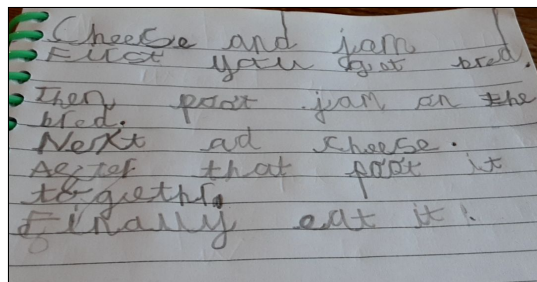 Cheese and jam
First you get bred.
Then poot jam on the
bred.
Next ad cheese.
After that poot it
togethr.
Finally eat it!